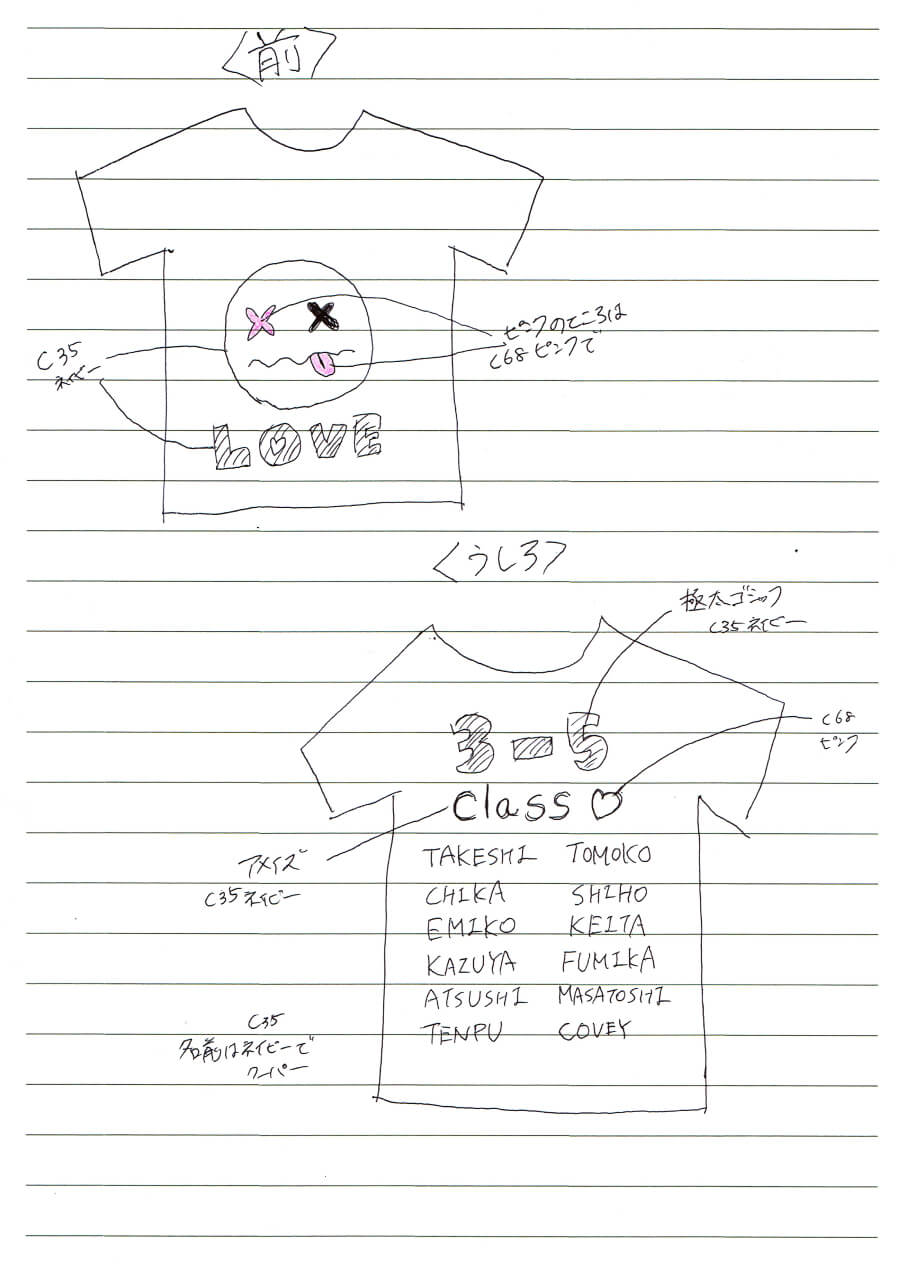 〈前〉
ピンクのところは
C68 ピンクで
C35
ネイビー
LOVE
〈うしろ〉
極太ゴシック
C35 ネイビー
3-5
C68
ピンク
Class ♡
アメイズ
C35 ネイビー
TAKESHI TOMOKO
CHIKA SHIHO
EMIKO KEITA
KAZUYA FUMIKA
ATSUSHI MASATOSHI
TENPU COVEY
C35
名前はネイビーで
クーパー